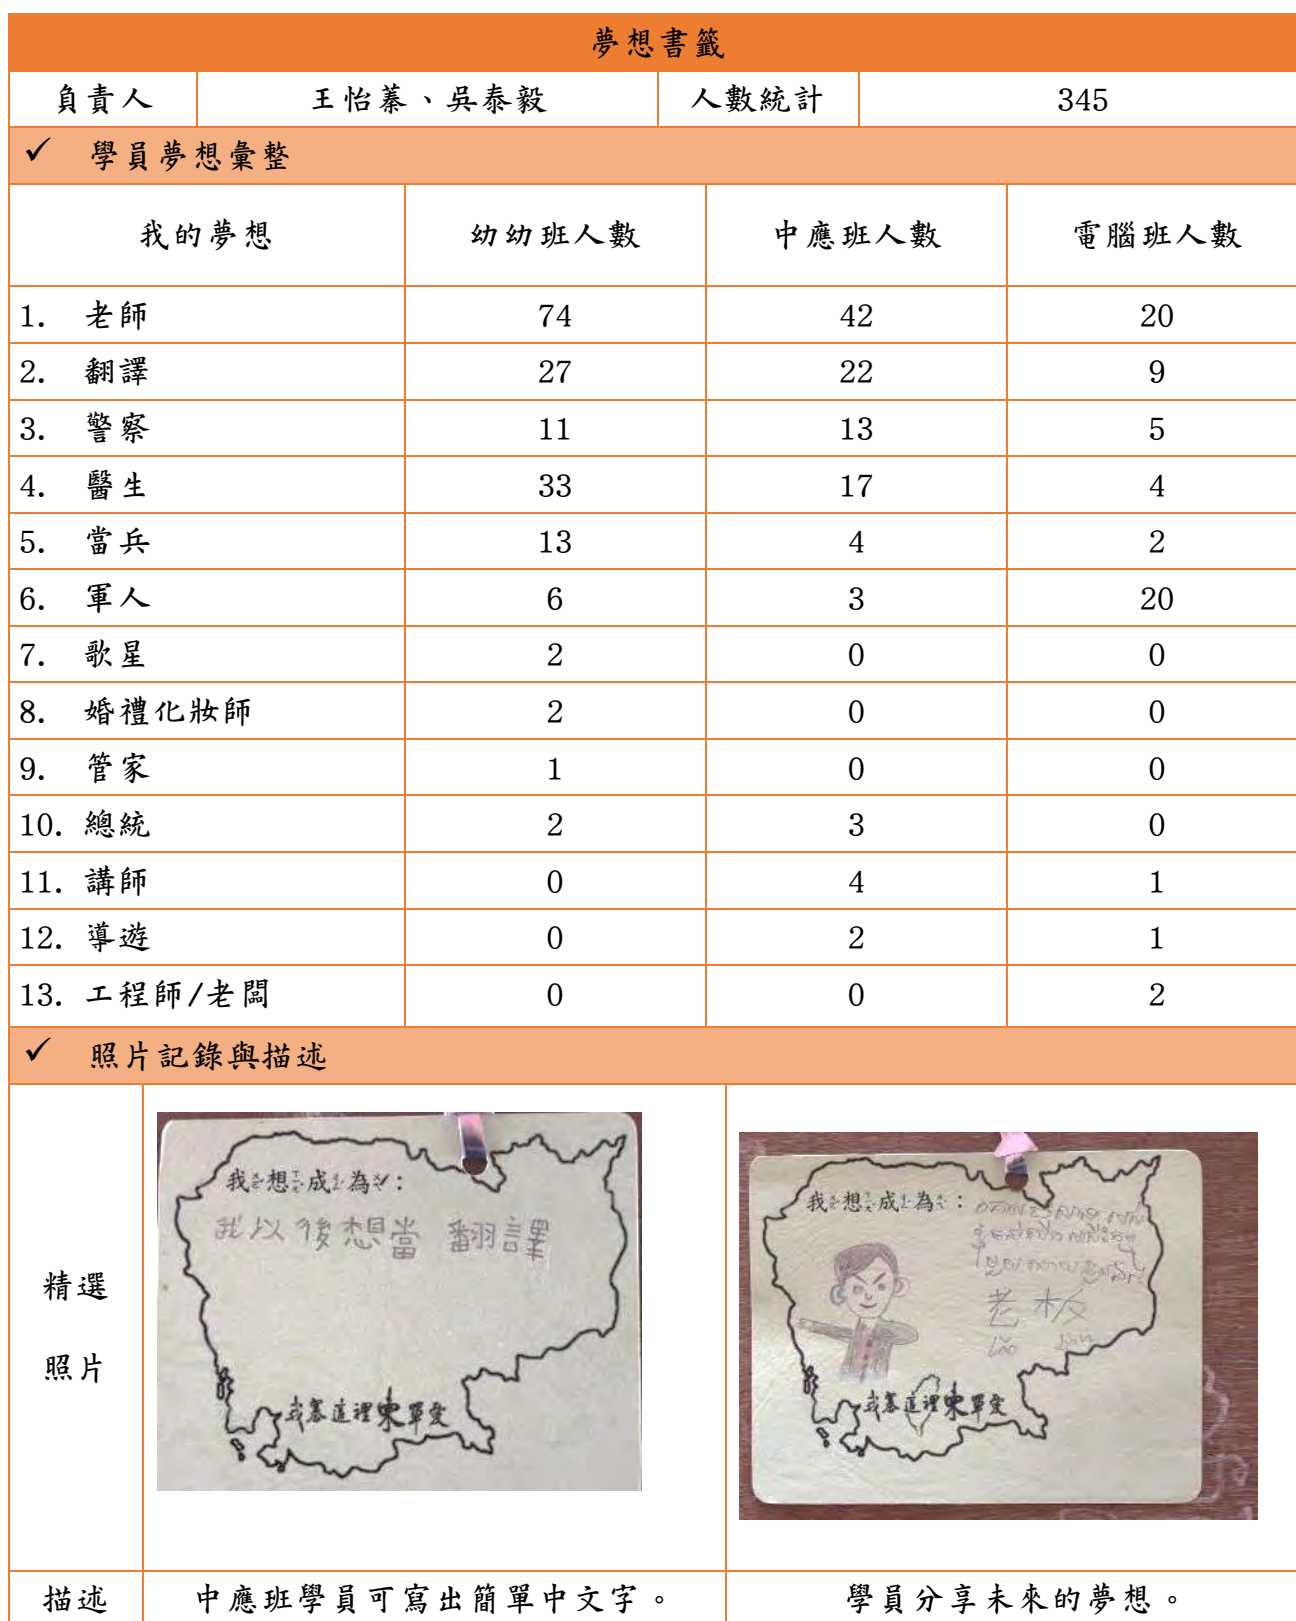 夢想書籤
負責人 王怡蓁、吳泰毅 人數統計 345
✓ 學員夢想彙整
我的夢想 幼幼班人數 中應班人數 電腦班人數
1. 老師 74 42 20
2. 翻譯 27 22 9
3. 警察 11 13 5
4. 醫生 33 17 4
5. 當兵 13 4 2
6. 軍人 6 3 20
7. 歌星 2 0 0
8. 婚禮化妝師 2 0 0
9. 管家 1 0 0
10. 總統 2 3 0
11. 講師 0 4 1
12. 導遊 0 2 1
13. 工程師/老闆 0 0 2
✓ 照片記錄與描述
精選
照片
我想成為：
我以後想當 翻譯
我寨這裡柬單愛
我想成為：
老板
lǎo bǎn
我寨這裡柬單愛
描述 中應班學員可寫出簡單中文字。 學員分享未來的夢想。